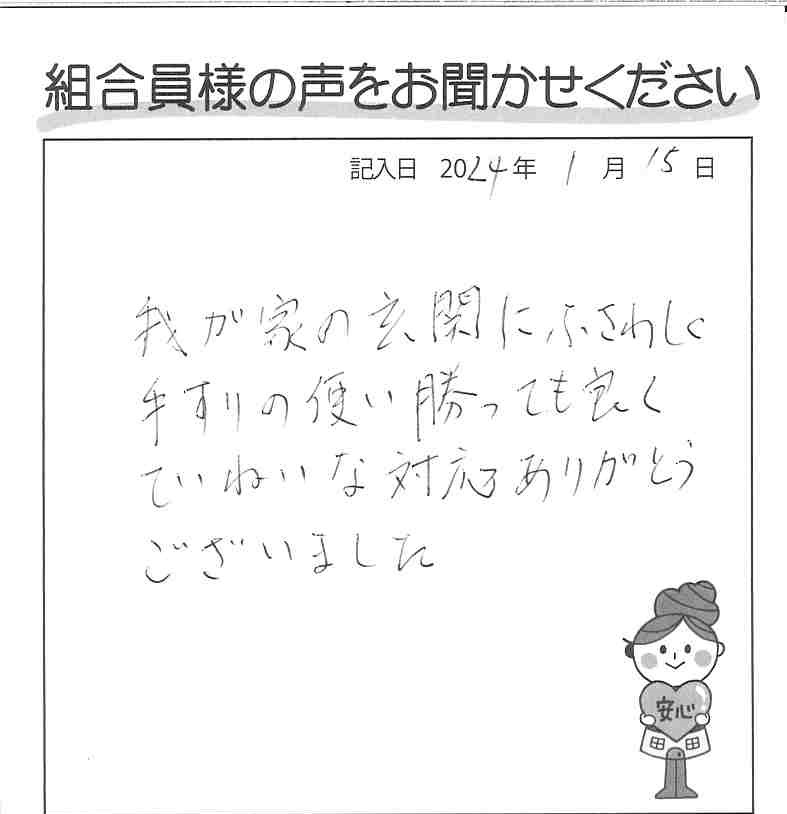 組合員様の声をお聞かせください
記入日 2024年 1月 15日
我が家の玄関にふさわしく
手すりの使い勝っても良く
ていねいな対応ありがとう
ございました
安心